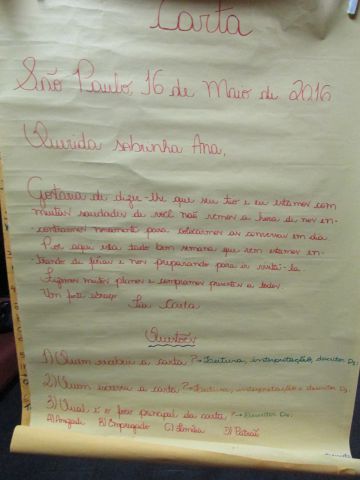 Carta
São Paulo, 16 de Maio de 2016
Querida sobrinha Ana,
Gostaria de dizer-lhe que seu tio e eu estamos com
muitas saudades de você não vemos a hora de nos en-
contrarmos novamente para colocarmos as conversas em dia
Por aqui está tudo bem semana que vem estamos en-
trando de férias e nos preparando para ir visitá-la.
Fizemos muitos planos e compramos presentes a todos
Um forte abraço
Tia Carla
Questões
1) Quem recebeu a carta? → Leitura, interpretação, descritor D
2) Quem escreveu a carta? → Leitura, interpretação e descritor D
3) Qual é o foco principal da carta? → Descritor D
A) Amizade B) Empregado C) Família D) Patrão